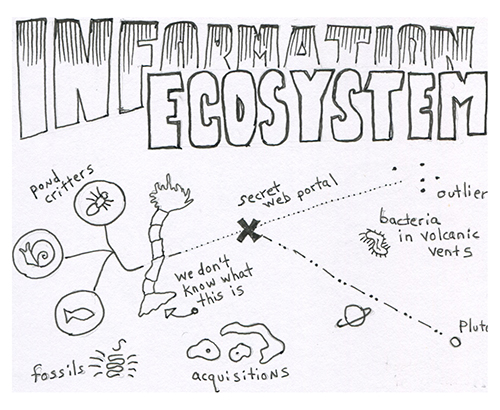 INFORMATION
ECOSYSTEM
pond
critters
secret
web portal
outlier
bacteria
in volcanic
vents
we don't
know what
this is
Plut
fossils
acquisitions